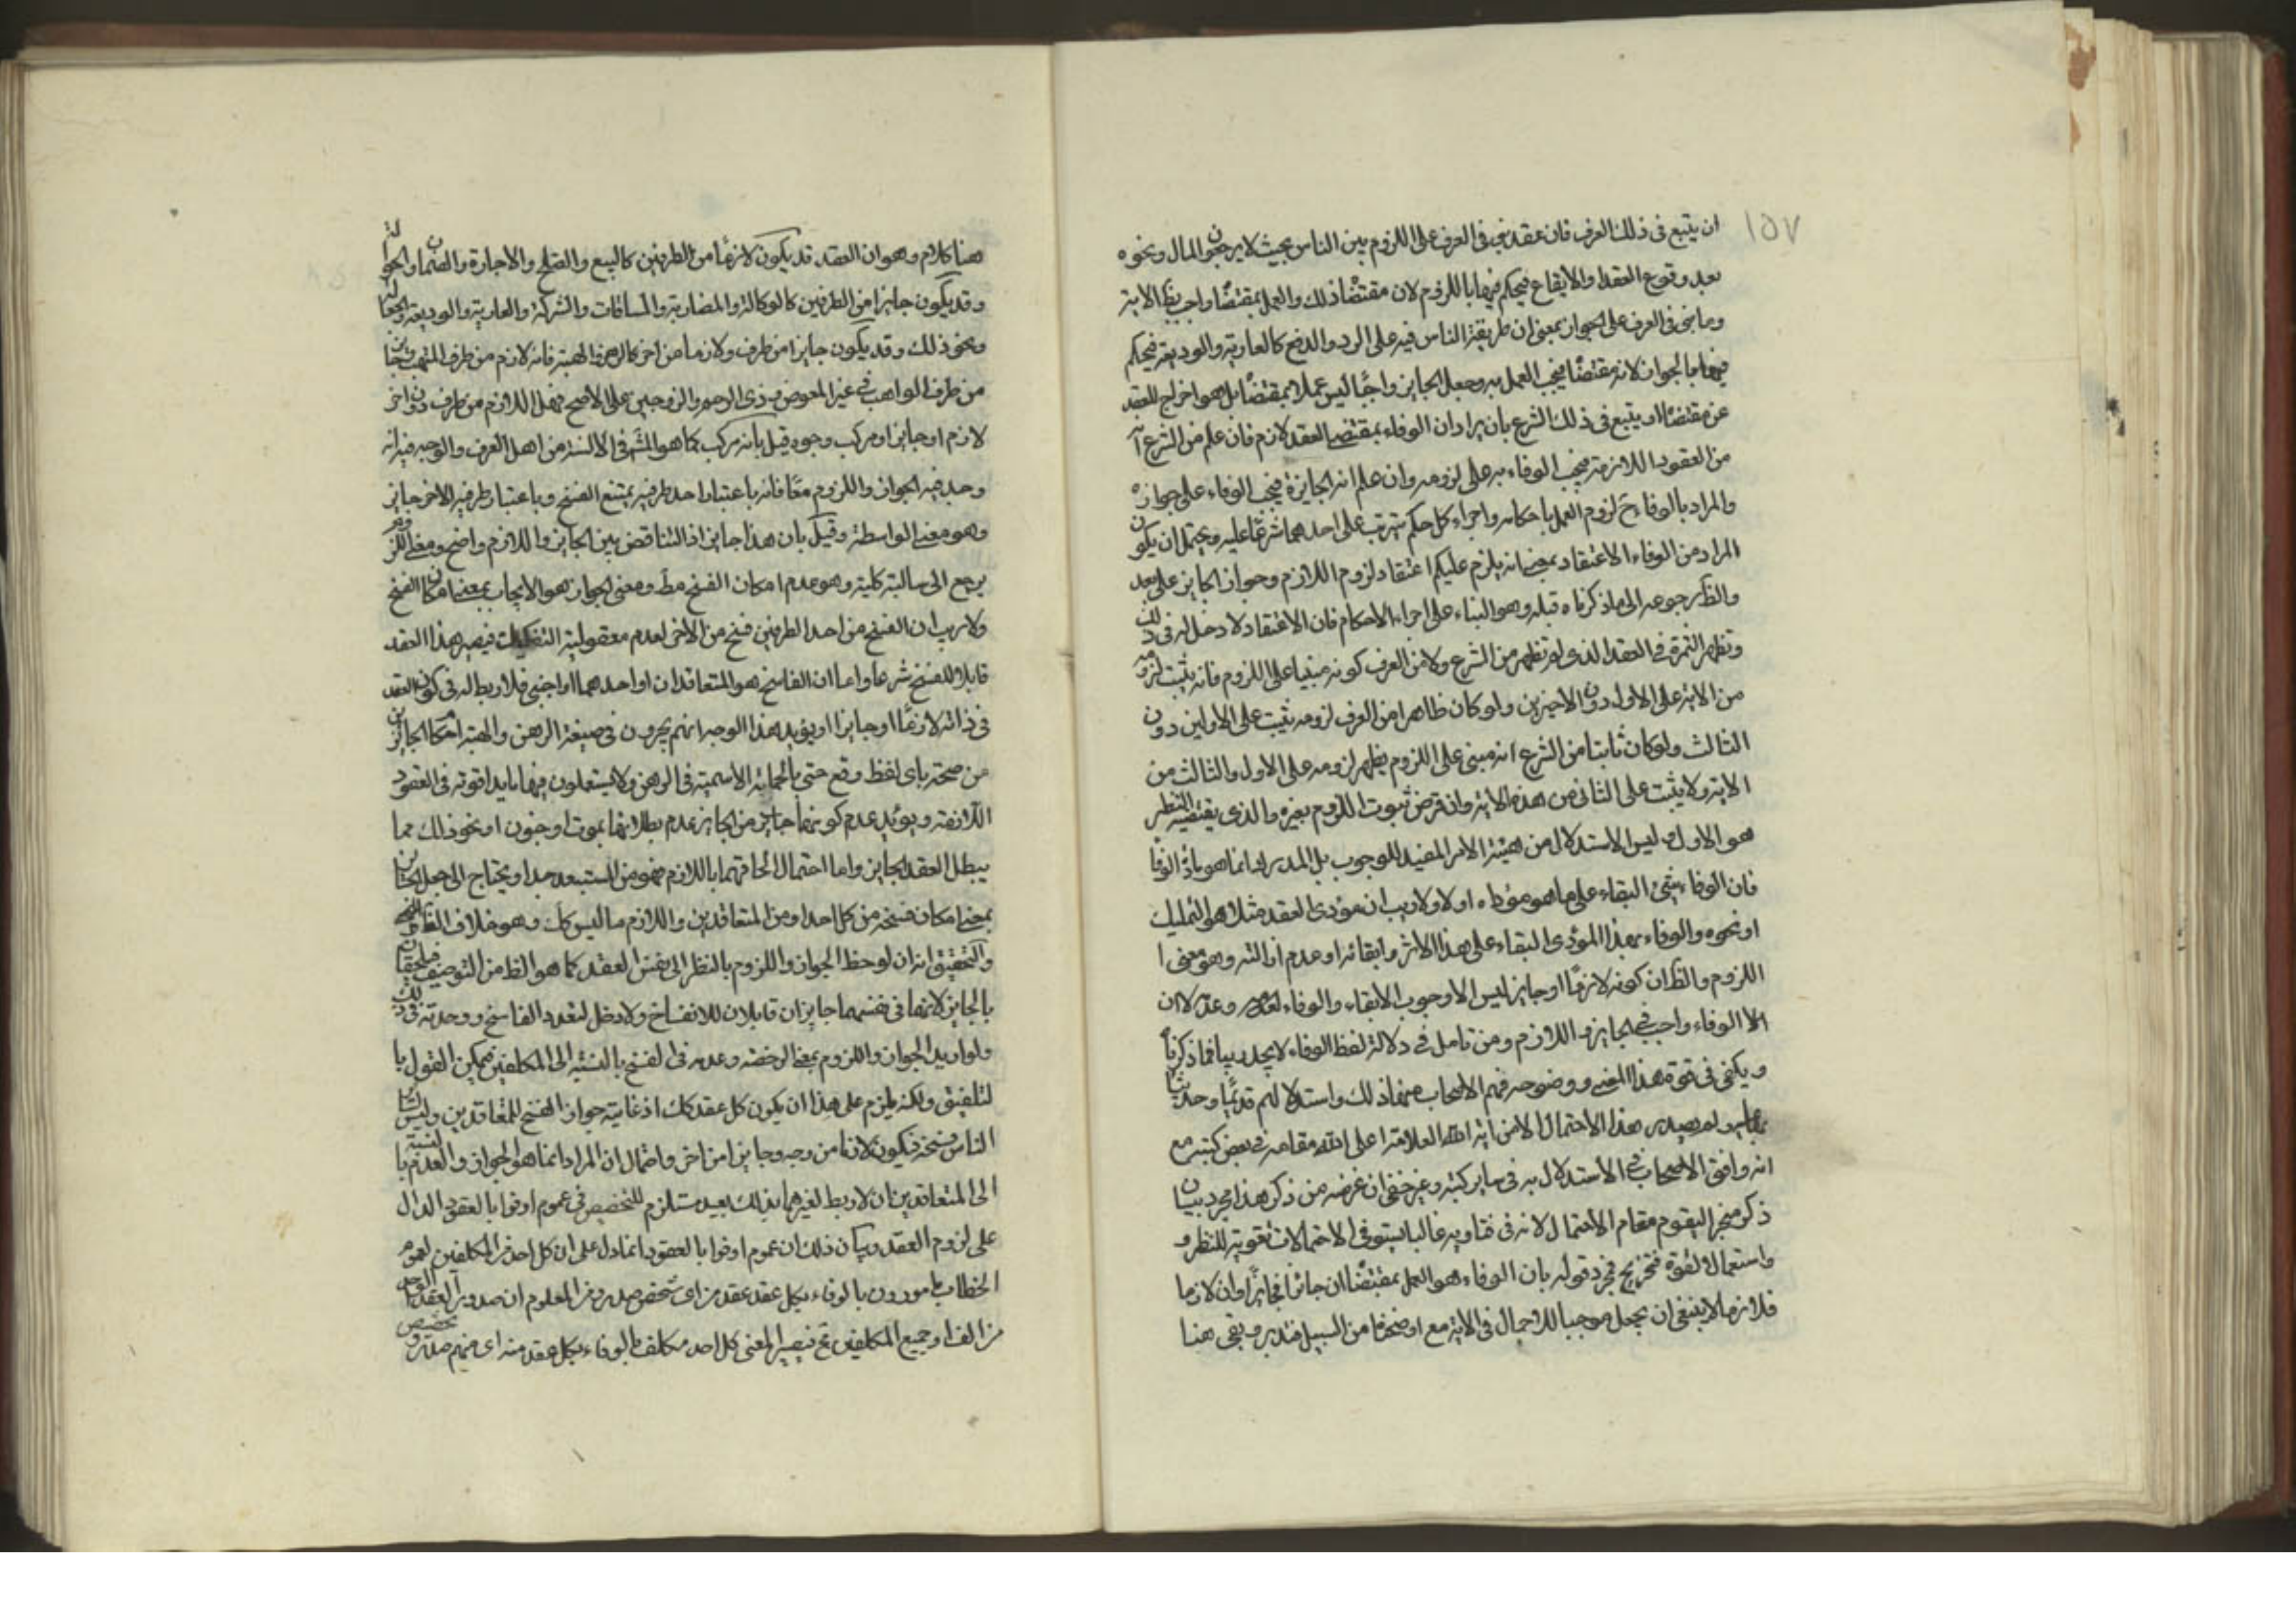 ١٥٧
ان يتبع فى ذلك العرف فان عقد بنى فى العرف على اللزوم بين الناس بحيث لا يرجعون المال ونحوه
بعد وقوع العقد والايقاع فيحكم فيها باللزوم لان مقتضا ذلك والعمل بمقتضا واجب بظ الاية
وما بنى فى العرف على الجواز بمعنى ان طريقة الناس فيه على الرد والدفع كالعارية والوديعة فيحكم
فيها بالجواز لانه مقتضا فيجب العمل به وجعل الجايز واجبا ليس عملا بمقتضا بل هو اخراج للعقد
عن مقتضا او يتبع فى ذلك الشرع بان يراد ان الوفاء بمقتضى العقد لازم فان علم من الشرع انه
من العقود اللازمة فيجب الوفاء به على لزومه وان علم انه الجايزة فيجب الوفاء على جوازه
والمراد بالوفاء ح لزوم العمل باحكامه واجراء كل حكم يترتب على احدهما شرعا عليه ويحتمل ان يكون
المراد من الوفاء الاعتقاد بمعنى انه يلزم عليكم اعتقاد لزوم اللازم وجواز الجايز على بعد
والظ رجوعه الى ما ذكرناه قبله وهو البناء على اجراء الاحكام فان الاعتقاد لا دخل له فى ذلك
وتظهر الثمرة فى العقد الذى لم تظهر من الشرع ولا من العرف كونه مبنيا على اللزوم فانه يثبت لزومه
من الاية على الاول دون الاخيرين ولو كان ظاهرا من العرف لزومه يثبت على الاولين دون
الثالث ولو كان ثابتا من الشرع انه مبنى على اللزوم يظهر لزومه على الاول والثالث من
الاية ولا يثبت على الثانى من هذه الاية وان فرض ثبوت اللزوم بغيره والذى يقتضيه النظر
هو الاول وليس الاستدلال من هيئة الامر المفيد للوجوب بل المدرك انما هو مادة الوفا
فان الوفاء بشئ البقاء على ما هو مؤداه اولا ولا ريب ان مؤدى العقد مثلا هو التمليك
او نحوه والوفاء بهذا المؤدى البقاء على هذا الاثر وابقائه او عدم ازالته وهو معنى ا
اللزوم والظ ان كونه لازما او جايزا ليس الا وجوب الابقاء والوفاء وعدمه لا ان
الوفاء واجب فى الجايز واللازم ومن تامل فى دلالة لفظ الوفاء لا يجد ريبا فيما ذكرنا
ويكفى فى قوة هذا المعنى ووضوحه فهم الاصحاب منها ذلك واستدلالهم قديما وحديثا
بها ولم يصدر هذا الاحتمال الا من اية الله العلامة اعلى الله مقامه فى بعض كتبه مع
انه وافق الاصحاب فى الاستدلال به فى ساير كتبه وغير خفى ان غرضه من ذكر هذا مجرد بيان
ذكر منجر اليقوم مقام الاحتمال لانه فى فتاويه غالبا يستوفى الاحتمالات تقوية للنظر و
واستعمالا لقوة فتخريج فمجرد قوله بان الوفاء هو العمل بمقتضا ان جائزا فجايزا وان لازما
فلازما لا ينبغى ان يجعل موجبا للاجمال فى الاية مع اوضحنا من السبيل فتدبر وبقى هنا
هنا كلام وهو ان العقد قد يكون لازما من الطرفين كالبيع والصلح والاجارة والضمان والحوالة
وقد يكون جايزا من الطرفين كالوكالة والمضاربة والمساقات والشركة والعارية والوديعة والجعالة
ونحو ذلك وقد يكون جايزا من طرف ولازما من اخر كالرهن والهبة فانه لازم من طرف المتهب وجايز
من طرف الواهب فى غير المعوض وذى الرحم والزوجين على الاصح فهل اللازم من طرف دون اخر
لازم او جايز او مركب وجوه قيل بانه مركب كما هو المشهر فى الالسنة من اهل العرف والوجه فيه انه
وجد فيه الجواز واللزوم معا فانه باعتبار احد طرفيه يمتنع الفسخ وباعتبار طرفيه الاخر جايز
وهو معنى الواسطة وقيل بان هذا جايز اذ التناقض بين الجايز واللازم واضح ومعنى اللزوم
يرجع الى سالبة كلية وهو عدم امكان الفسخ مط ومعنى الجواز هو الايجاب بمعنى امكان الفسخ
ولا ريب ان الفسخ من احد الطرفين فسخ من الاخر لعدم معقولية التفكيك فيصير هذا العقد
قابلا للفسخ شرعا واما ان الفاسخ هو المتعاقدان او احدهما او اجنبى فلا ربط له فى كون العقد
فى ذاته لازما او جايزا ويؤيد هذا الوجه انهم يجرون فى صيغة الرهن والهبة احكام الجايز
من صحته باى لفظ وقع حتى بالجملة الاسمية فى الرهن ولا يستعملون فيها ما يداقونه فى العقود
اللازمة ويؤيد عدم كونهما جايز من الجايز عدم بطلانهما بموت او جنون او نحو ذلك مما
يبطل العقد الجايز واما احتمال الحاقهما باللازم فهو من المستبعد جدا ويحتاج الى جعل الجايز
بمعنى امكان فسخه من كل احد او من المتعاقدين واللازم ما ليس كك وهو خلاف الظ
والتحقيق انه ان لوحظ الجواز واللزوم بالنظر الى نفس العقد كما هو الظ من التوصيف فيلحقان
بالجايز لانهما فى نفسهما جايزان قابلان للانفساخ ولا دخل لتعدد الفاسخ ووحدته فى ذلك
ولو اريد الجواز واللزوم بمعنى الرخصة وعدمه فى الفسخ بالنسبة الى المكلفين فيمكن القول با
لتلفيق ولكنه يلزم على هذا ان يكون كل عقد كك اذ غايته جواز الفسخ للمتعاقدين وليس لسائر
الناس فسخه فيكون لازما من وجه وجايزا من اخر واحتمال ان المراد انما هو الجواز والعدم بالنسبة
الى المتعاقدين اذ لا ربط لغيرهما بذلك بعيد مستلزم للتخصيص فى عموم اوفوا بالعقود الدال
على لزوم العقد وبيان ذلك ان عموم اوفوا بالعقود انما دل على ان كل احد من المكلفين لعموم
الخطاب مامورون بالوفاء بكل عقد عقد من اى شخص صدر ومن المعلوم ان صدور العقد الواحد
من الف او جميع المكلفين فيصير المعنى كل احد مكلف بالوفاء بكل عقد منه اى منهم صدر